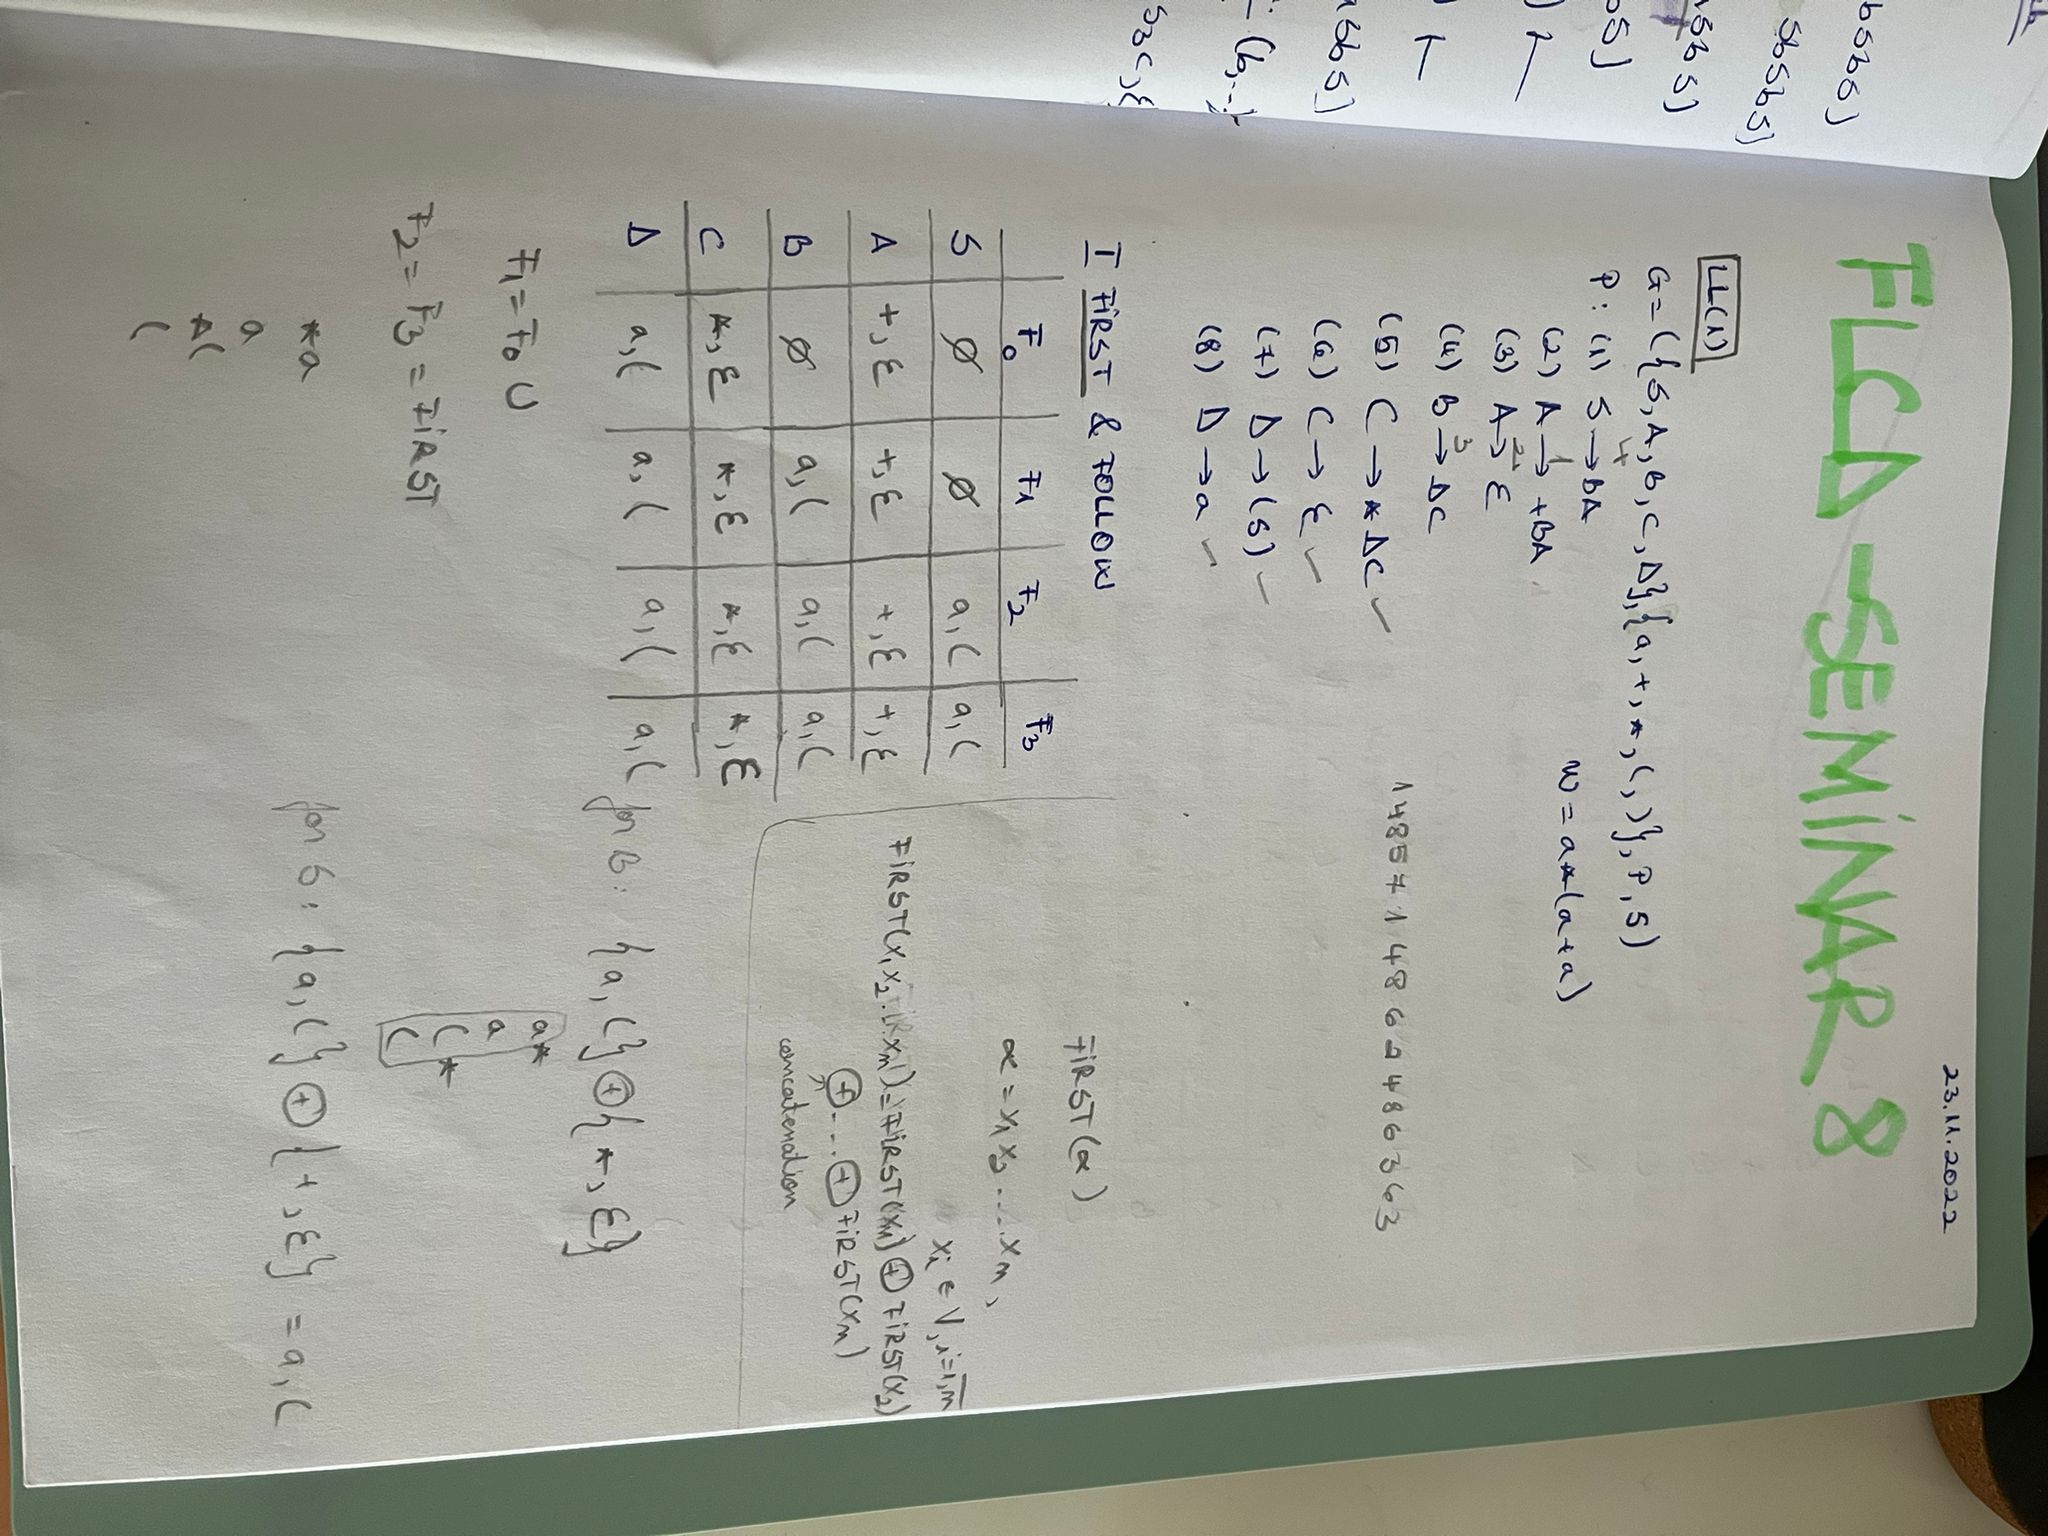 bsbs)
sbsbs)
sbs)
bs)
asbs)
(b,...)
23.11.2022
FLCD - SEMINAR 8
LL(1)
G = ({S, A, B, C, D}, {a, +, *, (, )}, P, S)
P: (1) S → BA 4
w = a*(a+a)
(2) A → +BA 1
(3) A → ε 2
(4) B → DC 3
(5) C → *DC ✓
1 4 8 5 7 1 4 8 6 2 4 8 6 3 6 3
(6) C → ε ✓
(7) D → (S) ✓
(8) D → a ✓
I FIRST & FOLLOW
F0 F1 F2 F3
S ∅ ∅ a, ( a, (
A +, ε +, ε +, ε +, ε
B ∅ a, ( a, ( a, (
C *, ε *, ε *, ε *, ε
D a, ( a, ( a, ( a, (
FIRST(α)
α = x1 x2 .... xn,
xi ∈ V, i = 1,n
FIRST(x1 x2 ... xn) = FIRST(x1) ⊕ FIRST(x2)
⊕ ... ⊕ FIRST(xn)
concatenation
for B: {a, (} ⊕ {*, ε}
a*
a
(*
(
F1 = F0 ∪
F2 = F3 = FIRST
for S: {a, (} ⊕ {+, ε} = a, (
*a
a
*(
(